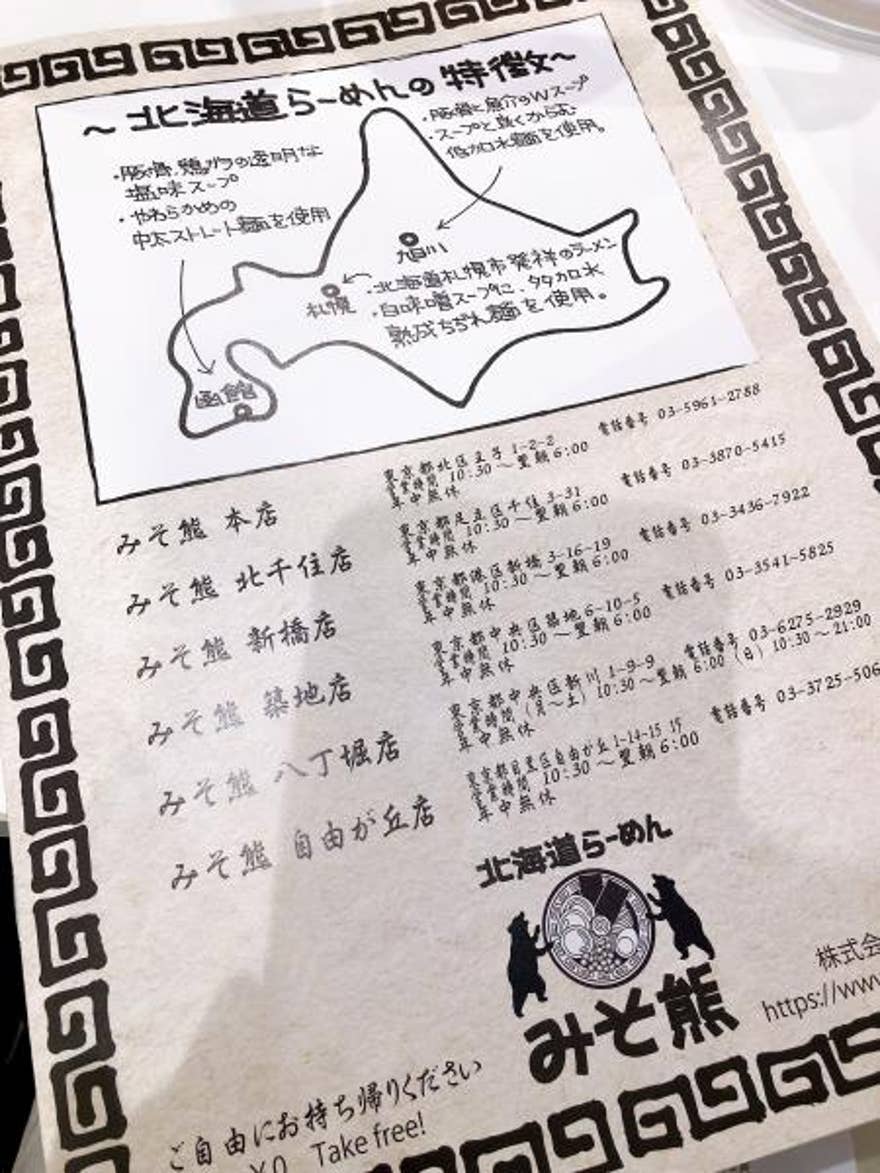 ～北海道らーめんの特徴～
・豚骨、鶏ガラの透明な
塩味スープ
・やわらかめの
中太ストレート麺を使用
・豚骨と魚介のWスープ
・スープと良くからむ
低加水麺を使用。
旭川
札幌
・北海道札幌市発祥のラーメン
・白味噌スープに、多加水
熟成ちぢれ麺を使用。
函館
みそ熊 本店
東京都北区王子 1-2-2 電話番号 03-5961-2788
営業時間 10:30～翌朝6:00
年中無休
みそ熊 北千住店
東京都足立区千住 3-31 電話番号 03-3870-5415
営業時間 10:30～翌朝6:00
年中無休
みそ熊 新橋店
東京都港区新橋 3-16-19 電話番号 03-3436-7922
営業時間 10:30～翌朝6:00
年中無休
みそ熊 築地店
東京都中央区築地 6-10-5 電話番号 03-3541-5825
営業時間 10:30～翌朝6:00
年中無休
みそ熊 八丁堀店
東京都中央区新川 1-9-9 電話番号 03-6275-2929
営業時間（月～土）10:30～翌朝6:00（日）10:30～21:00
年中無休
みそ熊 自由が丘店
東京都目黒区自由が丘 1-14-15 1F 電話番号 03-3725-506
営業時間 10:30～翌朝6:00
年中無休
北海道らーめん
みそ熊
株式会
https://www
ご自由にお持ち帰りください
¥0 Take free!